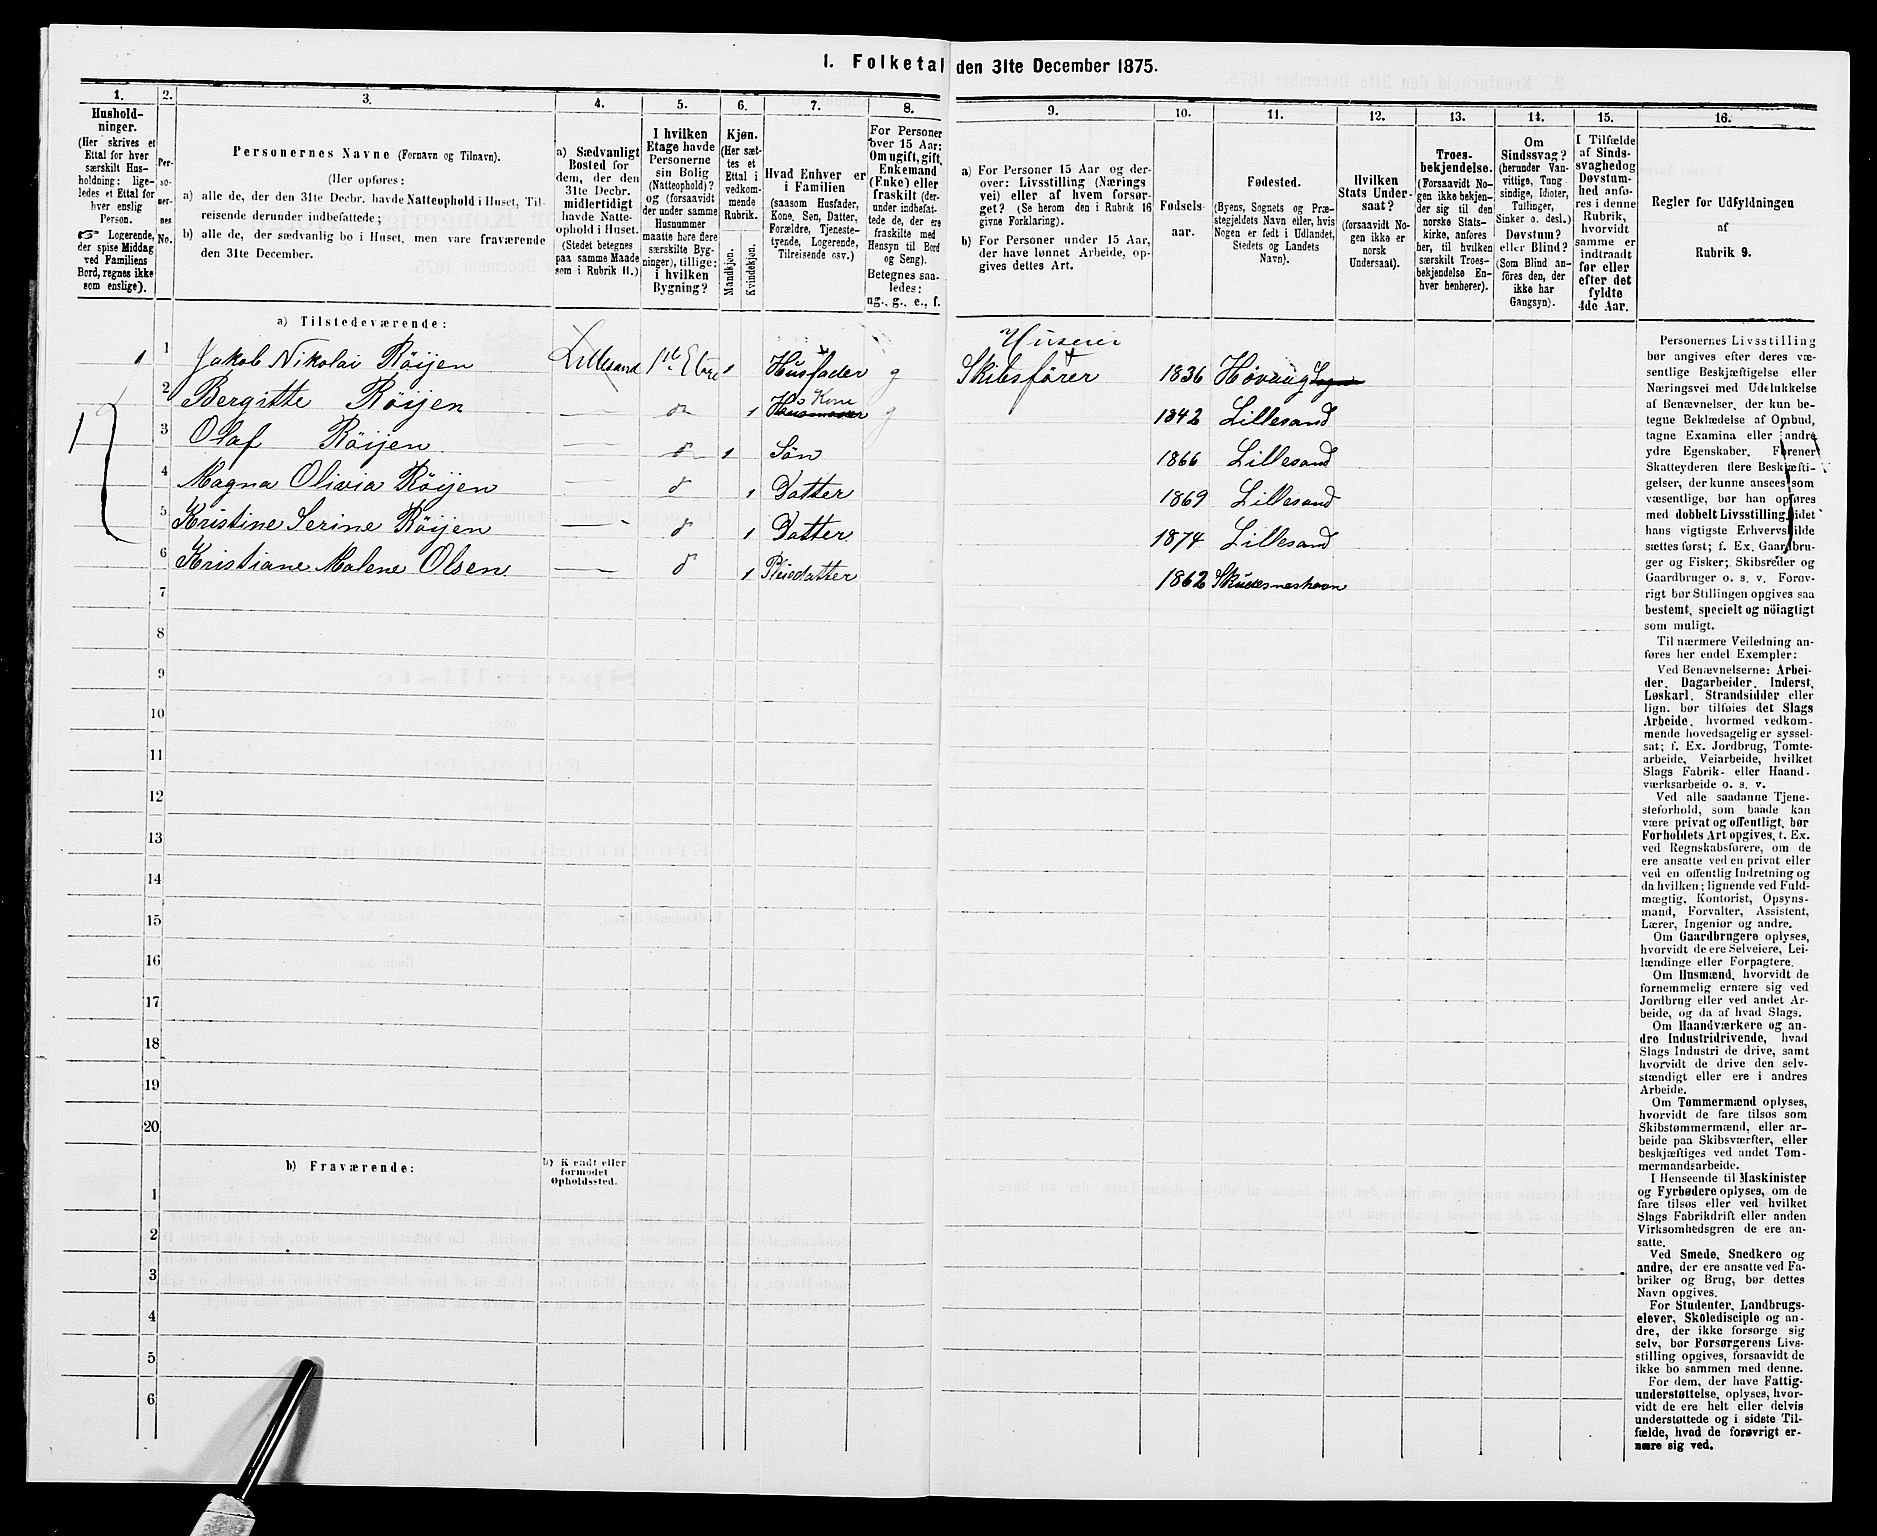 1. Folketal den 31te December 1875.
1. 2. 3. 4. 5. 6. 7. 8. 9. 10. 11. 12. 13. 14. 15. 16.
Hushold-
ninger.
(Her skrives et
Ettal for hver
særskilt Hus-
holdning; lige-
ledes et Ettal for
hver enslig
Person.
☞ Logerende,
der spise Middag
ved Familiens
Bord, regnes ikke
som enslige).
Per-
so-
ner-
nes
No.
Personernes Navne (Fornavn og Tilnavn).
(Her opføres:
a) alle de, der den 31te Decbr. havde Natteophold i Huset, Til-
reisende derunder indbefattede;
b) alle de, der sædvanlig bo i Huset, men vare fraværende
den 31te December.
a) Sædvanligt
Bosted for
dem, der den
31te Decbr.
midlertidigt
havde Natte-
ophold i Huset.
(Stedet betegnes
paa samme Maade
som i Rubrik 11.)
I hvilken
Etage havde
Personerne
sin Bolig
(Natteophold)?
og (forsaavidt
der under samme
Husnummer
maatte høre flere
særskilte Byg-
ninger), tillige:
i hvilken
Bygning?
Kjøn.
(Her sæt-
tes et
Ettal i
vedkom-
mende
Rubrik.
Mandkjøn.
Kvindekjøn.
Hvad Enhver er
i Familien
(saasom Husfader,
Kone, Søn, Datter,
Forældre, Tjeneste-
tyende, Logerende,
Tilreisende osv.)
For Personer
over 15 Aar:
Om ugift, gift,
Enkemand
(Enke) eller
fraskilt (der-
under indbefat-
tede de, der ere
fraskilte med
Hensyn til Bord
og Seng).
Betegnes saa-
ledes:
ug., g., e., f.
a) For Personer 15 Aar og der-
over: Livsstilling (Nærings
vei) eller af hvem forsør-
get? (Se herom den i Rubrik 16
givne Forklaring).
b) For Personer under 15 Aar,
der have lønnet Arbeide, op-
gives dettes Art.
Fødsels-
aar.
Fødested.
(Byens, Sognets og Præ-
stegjeldets Navn eller, hvis
Nogen er født i Udlandet,
Stedets og Landets
Navn).
Hvilken
Stats Under-
saat?
(forsaavidt No-
gen ikke er
norsk
Undersaat).
Troes-
bekjendelse.
(Forsaavidt No-
gen ikke bekjen-
der sig til den
norske Stats-
kirke, anføres
her, til hvilken
særskilt Troes-
bekjendelse En-
hver henhører).
Om
Sindssvag?
(herunder Van-
vittige, Tung
sindige, Idioter,
Tullinger,
Sinker o. desl.)
Døvstum?
eller Blind?
(Som Blind an-
føres den, der
ikke har
Gangsyn).
I Tilfælde
af Sinds-
svaghed og
Døvstum-
hed anfø-
res i denne
Rubrik,
hvorvidt
samme er
indtraadt
før eller
efter det
fyldte
4de Aar.
Regler for Udfyldningen
af
Rubrik 9.
a) Tilstedeværende:
Huseier
1 1 Jakob Nikolai Röijen Lillesand 1ste Etage 1 Husfader g Skibsförer 1836 Hövaag Sogn
Kone
2 Bergitte Röijen — d 1 Husmoder g 1842 Lillesand
3 Olaf Röijen — d 1 Sön 1866 Lillesand
4 Magna Olivia Röijen — d 1 Datter 1869 Lillesand
5 Kristine Serine Röijen — d 1 Datter 1874 Lillesand
6 Kristiane Malene Olsen — d 1 Pleiedatter 1862 Skudesneshavn
7
8
9
10
11
12
13
14
15
16
17
18
19
20
b) Fraværende:
b) Kendt eller
formodet
Opholdssted.
1
2
3
4
5
6
Personernes Livsstilling
bør angives efter deres væ-
sentlige Beskjæftigelse eller
Næringsvei med Udelukkelse
af Benævnelser, der kun be-
tegne Beklædelse af Ombud,
tagne Examina eller andre
ydre Egenskaber. Forener
Skatteyderen flere Beskjæfti-
gelser, der kunne ansees som
væsentlige, bør han opføres
med dobbelt Livsstilling, idet
hans vigtigste Erhvervskilde
sættes først; f. Ex. Gaardbru-
ger og Fisker; Skibsreder og
Gaardbruger o. s. v. Forøv-
rigt bør Stillingen opgives saa
bestemt, specielt og nöiagtigt
som muligt.
Til nærmere Veiledning an-
føres her endel Exempler:
Ved Benævnelserne: Arbei-
der, Dagarbeider, Inderst,
Løskarl, Strandsidder eller
lign. bør tilføies det Slags
Arbeide, hvormed vedkom-
mende hovedsagelig er syssel-
sat; f. Ex. Jordbrug, Tomte-
arbeide, Veiarbeide, hvilket
Slags Fabrik- eller Haand-
værksarbeide o. s. v.
Ved alle saadanne Tjene-
steforhold, som baade kan
være privat og offentligt, bør
Forholdets Art opgives, f. Ex.
ved Regnskabsførere, om de
ere ansatte ved en privat eller
ved en offentlig Indretning og
da hvilken; lignende ved Fuld-
mægtig, Kontorist, Opsyns-
mand, Forvalter, Assistent,
Lærer, Ingeniør og andre.
Om Gaardbrugere oplyses,
hvorvidt de ere Selveiere, Lei-
lændinge eller Forpagtere.
Om Husmænd, hvorvidt de
fornemmelig ernære sig ved
Jordbrug eller ved andet Ar-
beide, og da af hvad Slags.
Om Haandværkere og an-
dre Industridrivende, hvad
Slags Industri de drive, samt
hvorvidt de drive den selv-
stændigt eller ere i andres
Arbeide.
Om Tømmermænd oplyses,
hvorvidt de fare tilsøs som
Skibstømmermænd, eller ar-
beide paa Skibsværfter, eller
beskjæftiges ved andet Tøm-
mermandsarbeide.
I Henseende til Maskinister
og Fyrbødere oplyses, om de
fare tilsøs eller ved hvilket
Slags Fabrikdrift eller anden
Virksomhedsgren de ere an-
satte.
Ved Smede, Snedkere og
andre, der ere ansatte ved Fa-
briker og Brug, bør dettes
Navn opgives.
For Studenter, Landbrugs-
elever, Skoledisciple og an-
dre, der ikke forsørge sig
selv, bør Forsørgerens Livs-
stilling opgives, forsaavidt de
ikke bo sammen med denne.
For dem, der have Fattig-
understøttelse, oplyses, hvor-
vidt de ere helt eller delvis
understøttede og i sidste Til-
fælde, hvad de forøvrigt er-
nære sig ved.